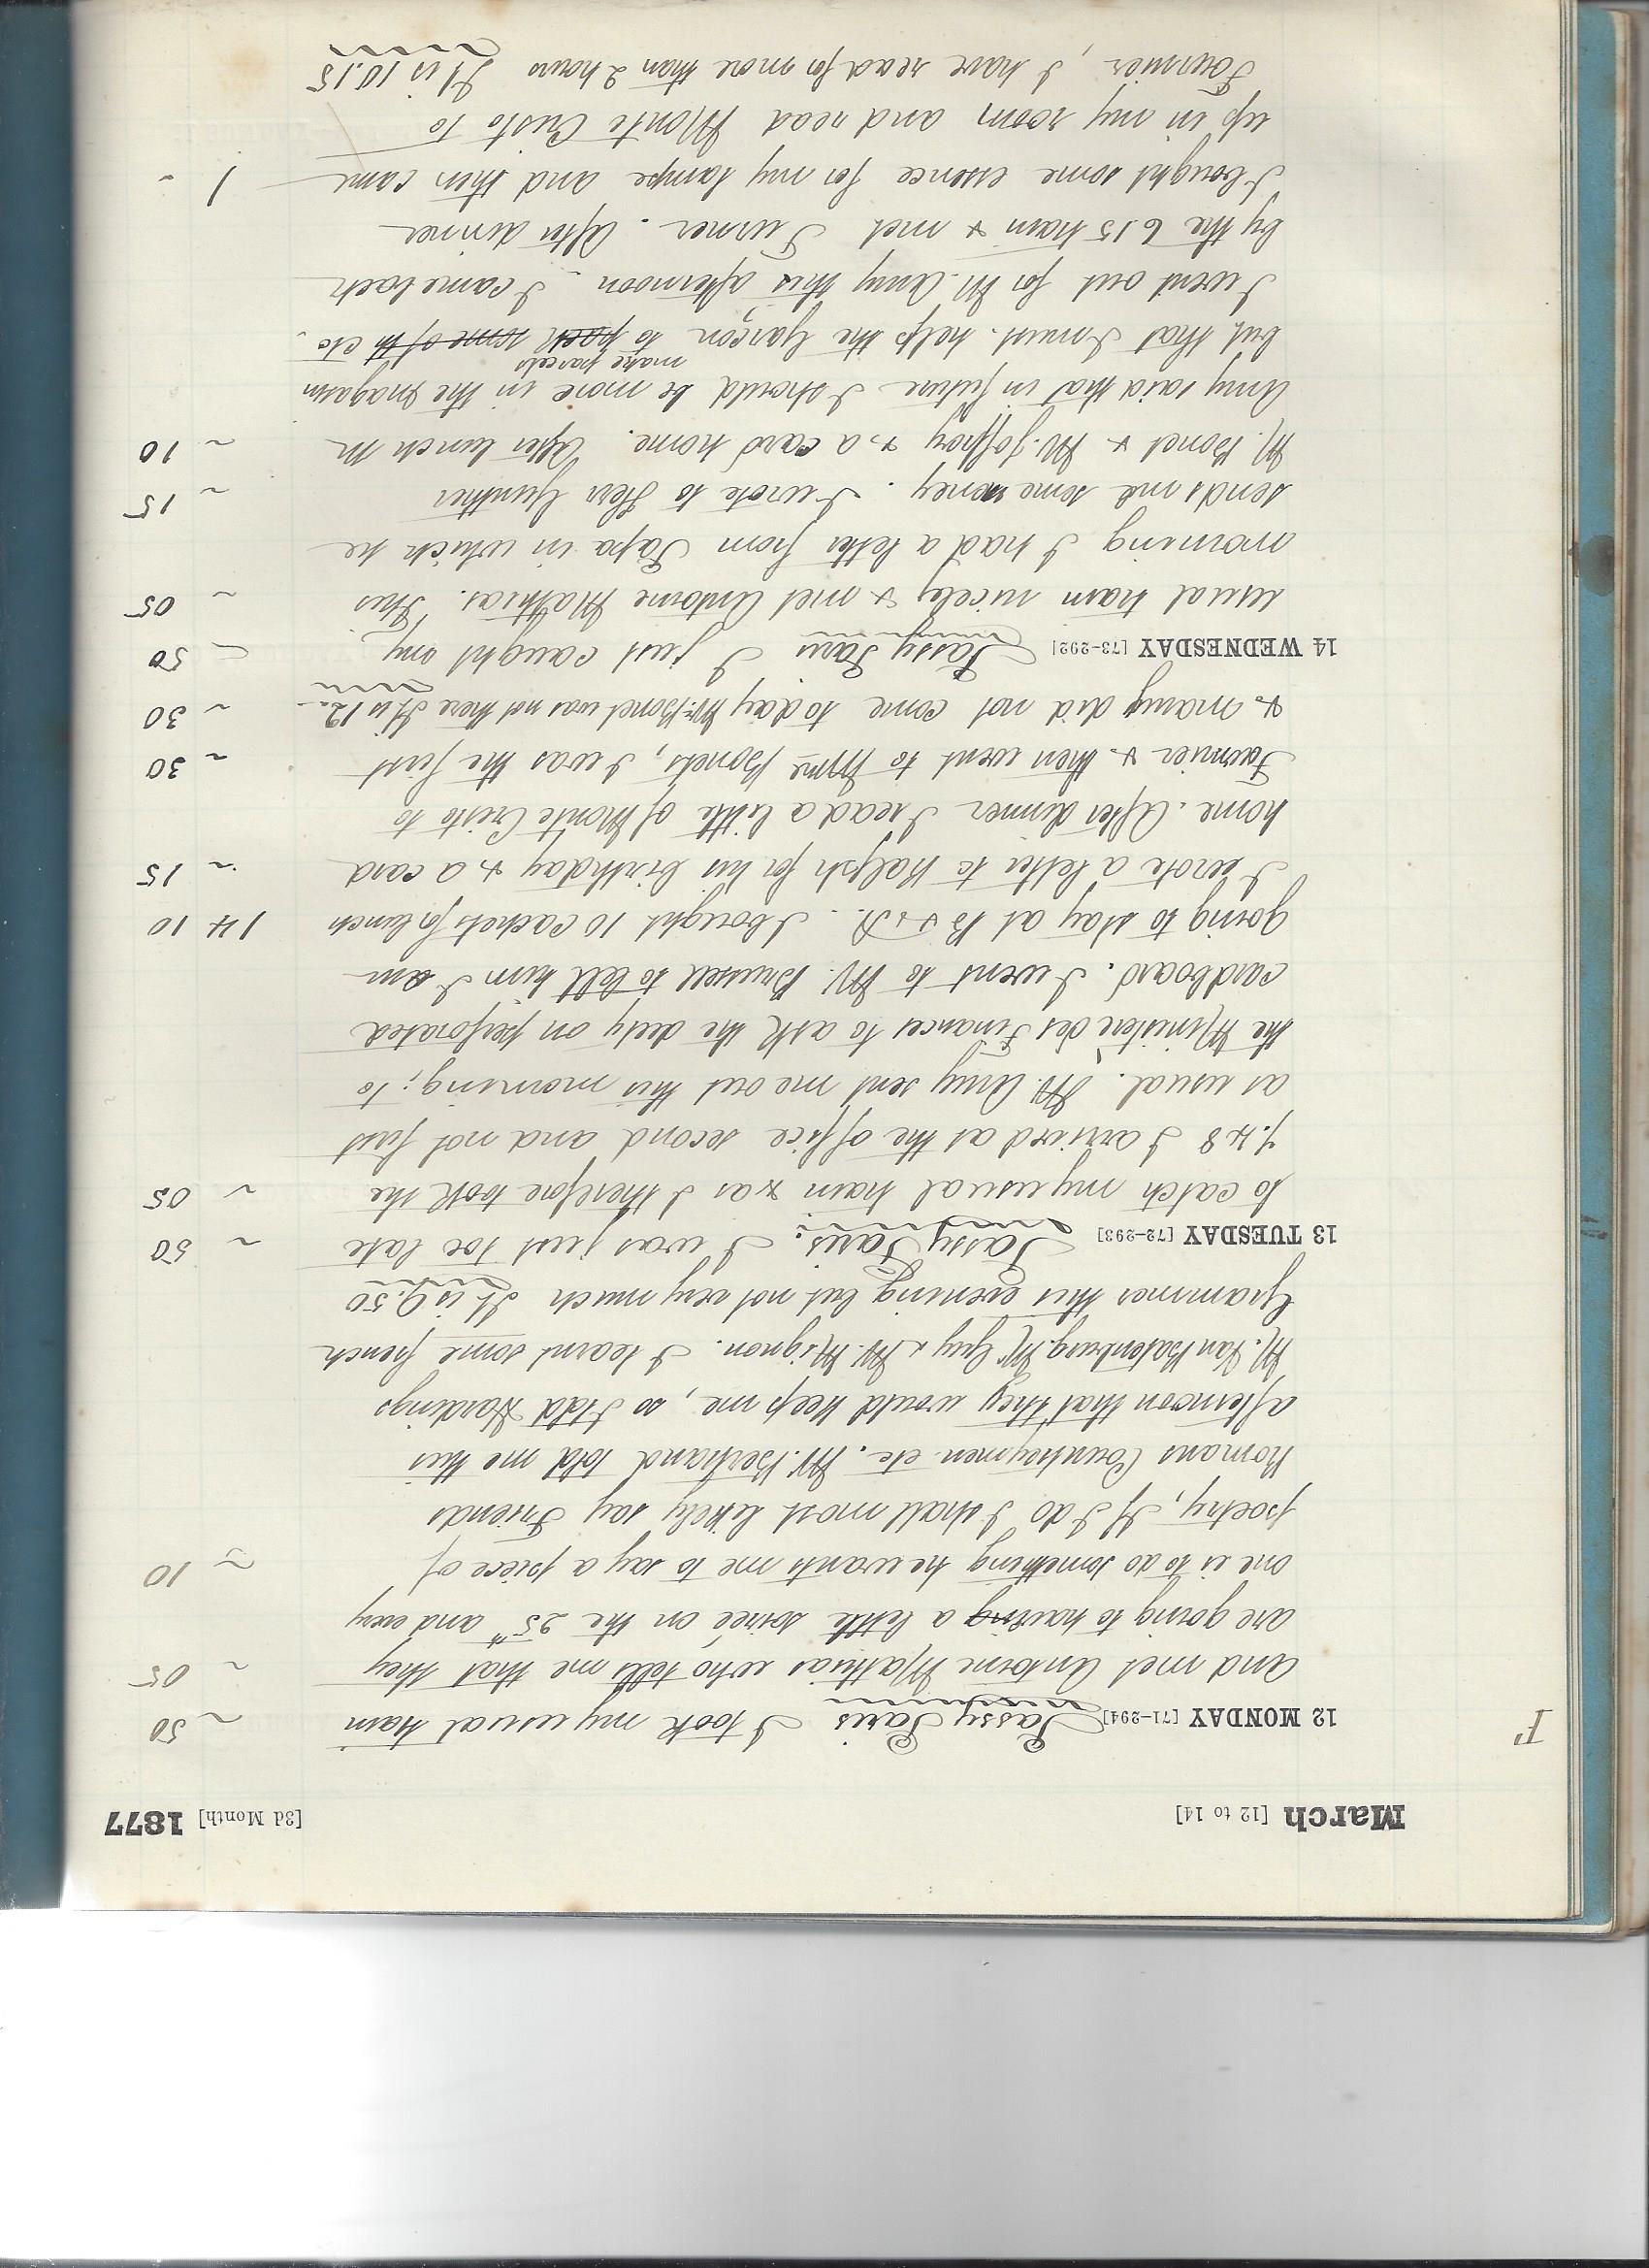 March [12 to 14] [3d Month] 1877
F
12 MONDAY [71-294] Passy Paris I took my usual train ~ 50
and met Antoine Mathias who tells me that they ~ 05
are going to having a little soireé on the 25th and every
one is to do something he wants me to say a piece of ~ 10
poetry, If I do I shall most likely say Friends
Romans Countrymen etc. Mr. Bertrand told me this
afternoon that they would keep me, so I told Hardings
M. Van Batenburg. Mr Guy & M. Mignon. I learnt some french
Grammar this evening but not very much It is 9.50
13 TUESDAY [72-293] Passy Paris. I was just too late ~ 50
to catch my usual train & as I therefore took the ~ 05
7.48 I arrived at the office second and not first
as usual. M. Amy sent me out this morning; to
the Ministère des Finances to ask the duty on perforated
cardboard. I went to M. Brussell to tell him I am
going to stay at B & D. I bought 10 cachets for lunch 14 10
I wrote a letter to Ralph for his birthday & a card ~ 15
home. After dinner I read a little of Monte Cristo to
Fournier & then went to Mme Bonets, I was the first ~ 30
& many did not come today Mr. Bonet was not there It is 12. ~ 30
14 WEDNESDAY [73-292] Passy Paris I just caught my ~ 50
usual train nicely & met Antoine Mathias. This ~ 05
morning I had a letter from Papa in which he
sends me some money. I wrote to Herr Gunther ~ 15
M. Bonet & M. Joffroy & a card home. After lunch M ~ 10
Amy said that in future I should be more in the magasin
make parcels
but that I must. help the Garçon to pack some of th etc.
I went out for M. Amy this afternoon. I came back
by the 6 15 train & met Turner. After dinner
I bought some essence for my lampe and then came 1 -
up in my room and read Monte Cristo to
Fournier, I have read for more than 2 hours It is 10.15